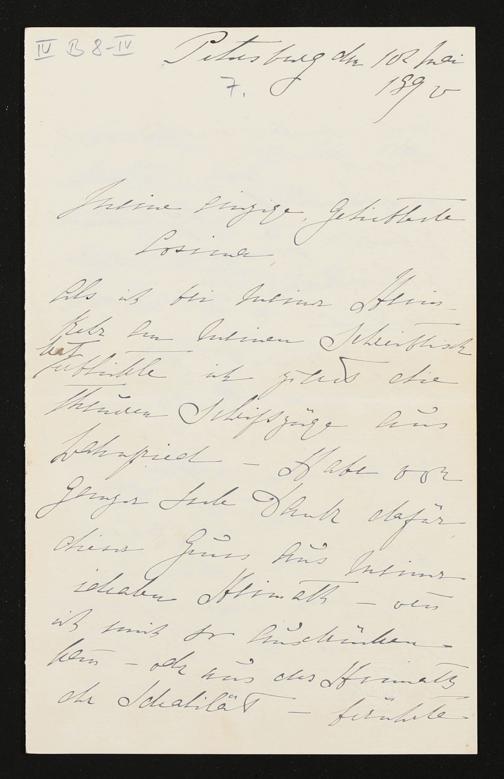 IV B 8-IV
Petersburg den 10t Mai
7.
189
Meine einzige, Geliebteste
Cosima
Als ich bei meiner Heim
kehr an meinen Schreibtisch
trat
erblickte ich zuerst die
theuren Schriftzüge aus
Wahnfried – Habe von
ganzer Seele Dank dafür
diesen Gruss aus meiner
idealen Heimath – wenn
ich mich so ausdrücken
kann – oder aus der Heimath
der Idealität –